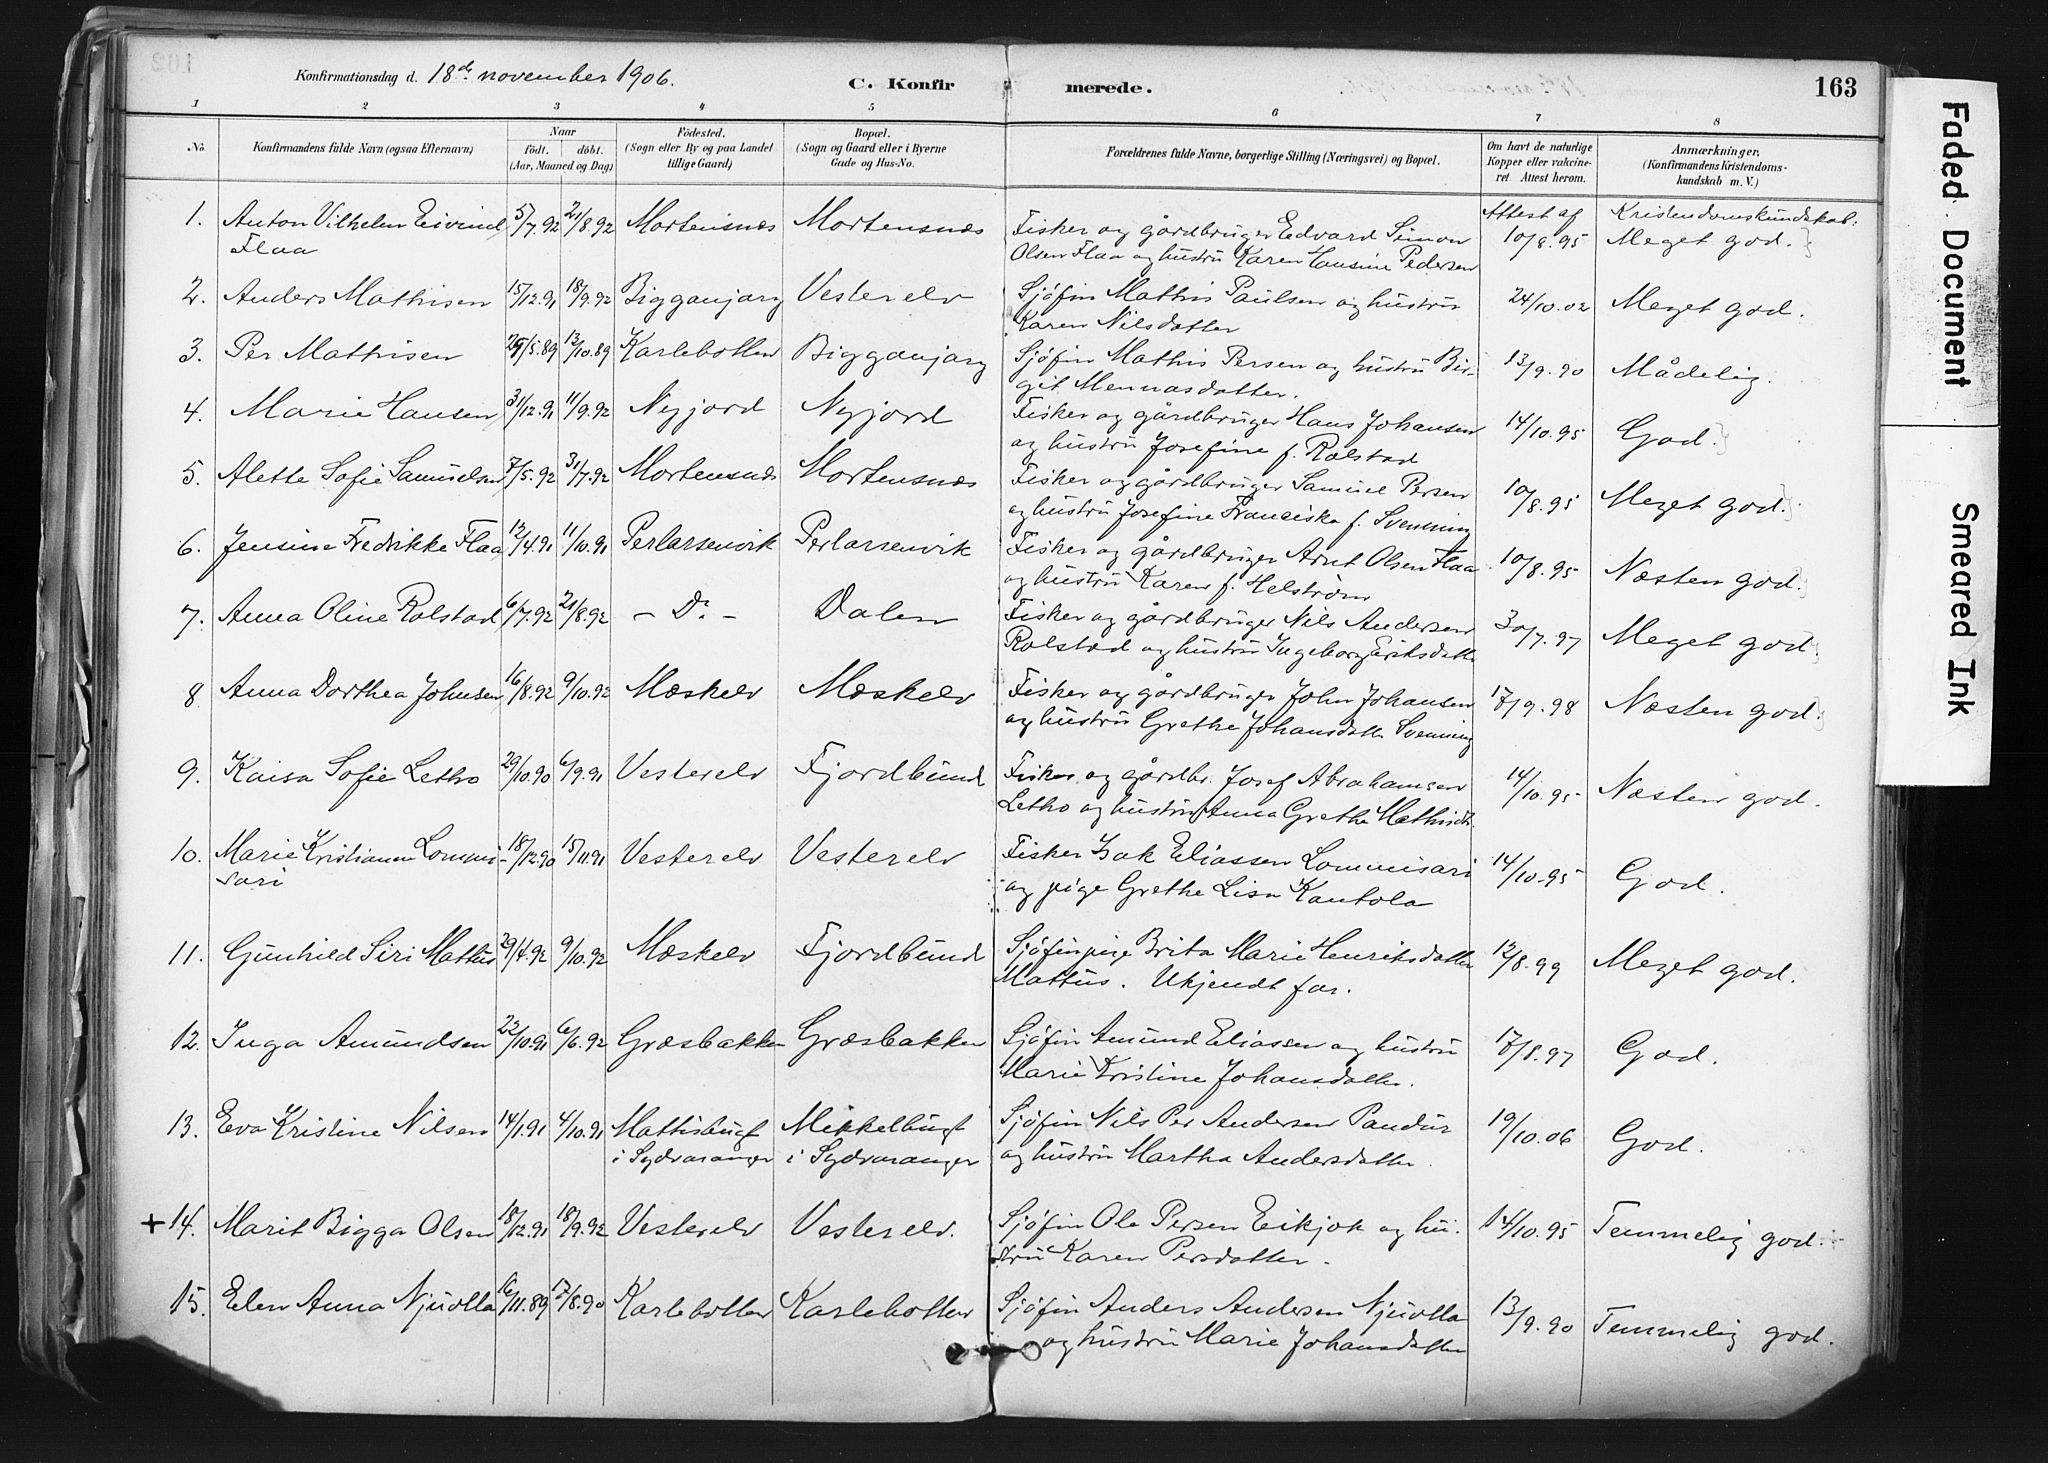 Konfirmationsdag d. 18de november 1906.
C. Konfirmerede.
163
1 2 3 4 5 6 7 8
No.
Konfirmandens fulde Navn (ogsaa Efternavn)
Naar
födt. döbt.
(Aar, Maaned og Dag)
Födested.
(Sogn eller By og paa Landet
tillige Gaard)
Bopæl.
(Sogn og Gaard eller i Byerne
Gade og Hus-No.
Forældrenes fulde Navne, borgerlige Stilling (Næringsvei) og Bopæl.
Om havt de naturlige
Kopper eller vakcine-
ret. Attest herom.
Anmærkninger,
(Konfirmandens Kristendoms-
kundskab m. V.)
Attest af Kristendomskundskab:
1. Anton Vilhelm Eivind 5/7.92 21/8.92 Mortensnæs Mortensnæs Fisker og gårdbruger Edvard Simon 10/8.95 Meget god.
Flaa Olsen Flaa og hustru Karen Hansine Pedersen
2. Anders Mathisen 15/12.91 18/9.92 Bigganjarg Vesterelv Sjöfin Mathis Paulsen og hustru 24/10.02 Meget god.
Karen Nilsdatter
3. Per Mathisen 25/5.89 13/10.89 Karlebotten Bigganjarg Sjöfin Mathis Persen og hustru Bir- 13/9.90 Mådelig.
git Mennasdatter.
4. Marie Hansen 31/12.91 11/9.92 Nyjord Nyjord Fisker og gårdbruger Hans Johansen 14/10.95 God.
og hustru Josefine f. Rolstad
5. Alette Sofie Samuelsen 7/5.92 31/7.92 Mortensnæs Mortensnæs Fisker og gårdbruger Samuel Persen 10/8.95 Meget god.
og hustru Josefine Franciska f. Svenning
6. Jensine Fredrikke Flaa 13/4.91 11/10.91 Perlarsenvik Perlarsenvik Fisker og gårdbruger Arnt Olsen Flaa 10/8.95 Næsten god.
og hustru Karen f. Helström
7. Anna Oline Rolstad 6/7.92 21/8.92 – Do. – Dalen Fisker og gårdbruger Nils Andersen 30/7.97 Meget god
Rolstad og hustru Ingeborg Eriksdatter
8 Anna Dorthea Johnsen 16/8.92 9/10.92 Mæskelv Mæskelv Fisker og gårdbruger John Johansen 17/9.98 Næsten god.
og hustru Grethe Johansdatter Svenning
9. Kaisa Sofie Letho 29/10.90 6/9.91 Vesterelv Fjordbund Fisker og gårdbr. Josef Abrahamsen 14/10.95 Næsten god.
Letho og hustru Anna Grethe Mathisdtr.
10. Marie Kristianne Lommi- 18/12.90 15/11.91 Vesterelv Vesterelv Fisker Isak Eliassen Lommisari 14/10.95 God.
sari og pige Grethe Lisa Kantola
11. Gunhild Siri Mattus 29/4.92 9/10.92 Mæskelv Fjordbund Sjöfinpige Brita Marie Henriksdatter 12/8.99 Meget god.
Mattus. Ukjendt far.
12. Inga Amundsen 22/10.91 6/6.92 Græsbakken Græsbakken Sjöfin Amund Eliassen og hustru 17/8.97 God.
Marie Kristine Johansdatter.
13. Eva Kristine Nilsen 14/1.91 4/10.91 Mattisbugt Mikkelbugt Sjöfin Nils Per Andersen Pandur 19/10.06 God.
i Sydvaranger i Sydvaranger og hustru Martha Andersdatter.
+ 14. Marit Bigga Olsen 18/12.91 18/9.92 Vesterelv Vesterelv. Sjöfin Ole Persen Eikjok og hu- 14/10.95 Temmelig god.
stru Karen Persdatter.
15. Elen Anna Njuolla 16/11.89 17/8.90 Karlebotten Karlebotten Sjöfin Anders Andersen Njuolla 13/9.90 Temmelig god.
og hustru Marie Johansdatter
Faded Document
Smeared Ink